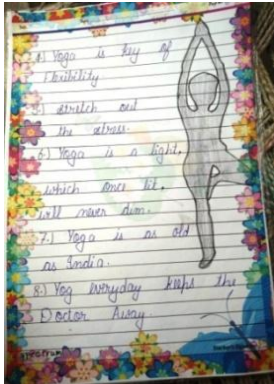 4.) Yoga is key of
flexibility
5.) Stretch out
the stress.
6.) Yoga is a light,
which once lit,
will never dim.
7.) Yoga is as old
as India.
8.) Yog everyday keeps the
Doctor Away